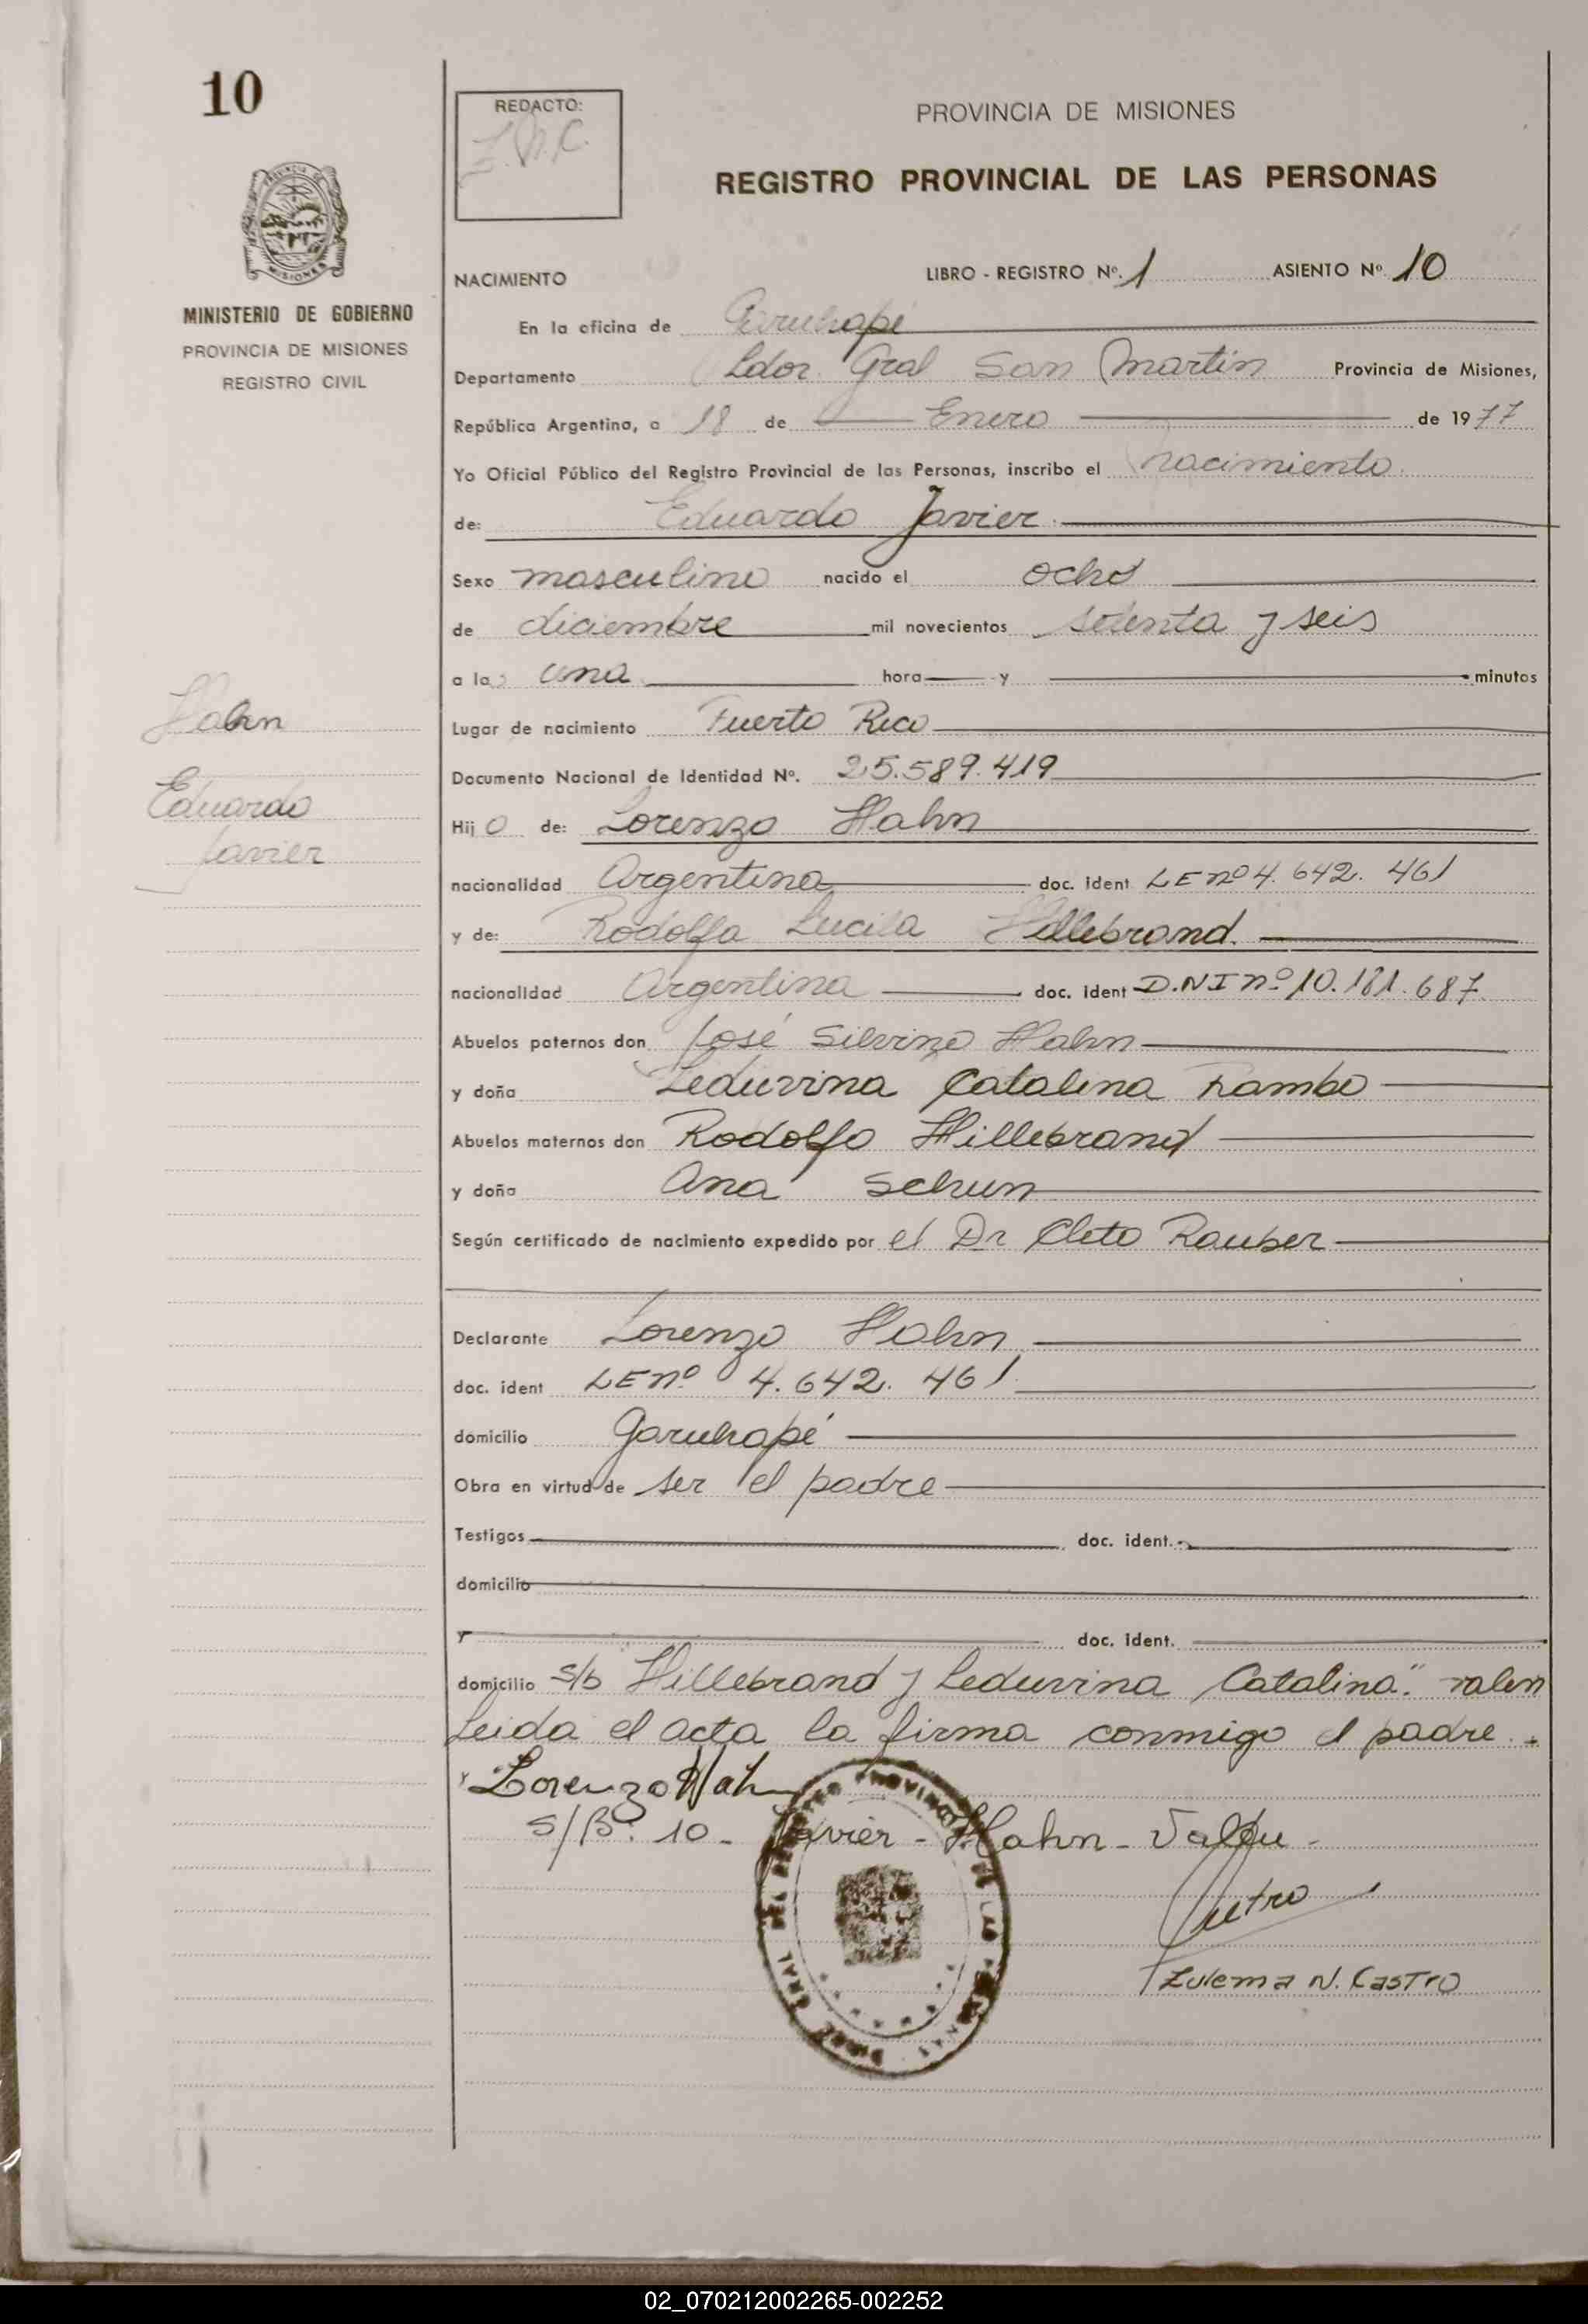 10
REDACTO:
Z.N.C.
PROVINCIA DE MISIONES
REGISTRO PROVINCIAL DE LAS PERSONAS
MISIONES
MINISTERIO DE GOBIERNO
PROVINCIA DE MISIONES
REGISTRO CIVIL
NACIMIENTO LIBRO - REGISTRO Nº. 1 ASIENTO Nº 10
En la oficina de Garuhapé
Departamento Ldor. Gral San Martin Provincia de Misiones,
República Argentina, a 18 de Enero de 1977
Yo Oficial Público del Registro Provincial de las Personas, inscribo el nacimiento
de: Eduardo Javier
Sexo masculino nacido el ocho
de diciembre mil novecientos setenta y seis
a la una hora y minutos
Lugar de nacimiento Puerto Rico
Documento Nacional de Identidad Nº. 25.589.419
Hijo de: Lorenzo Hahn
nacionalidad Argentina doc. ident LE nº 4.642.461
y de: Rodolfa Lucila Hillebrand.
nacionalidad Argentina doc. ident D.N.I nº 10.181.687
Abuelos paternos don José Silvino Hahn
y doña Leduvina Catalina Rambo
Abuelos maternos don Rodolfo Hillebrand
y doña Ana Schun
Según certificado de nacimiento expedido por el Dr Cleto Rauber
Declarante Lorenzo Hahn
doc. ident LE nº 4.642.461
domicilio Garuhapé
Obra en virtud de ser el padre
Testigos doc. ident.
domicilio
Y doc. ident.
domicilio s/b Hillebrand y Leduvina Catalina" valen
Leida el acta la firma conmigo el padre.
Lorenzo Hahn
S/B: 10 - Javier - Hahn - Valen -
Zulema N. Castro
Hahn
Eduardo
Javier
02_070212002265-002252